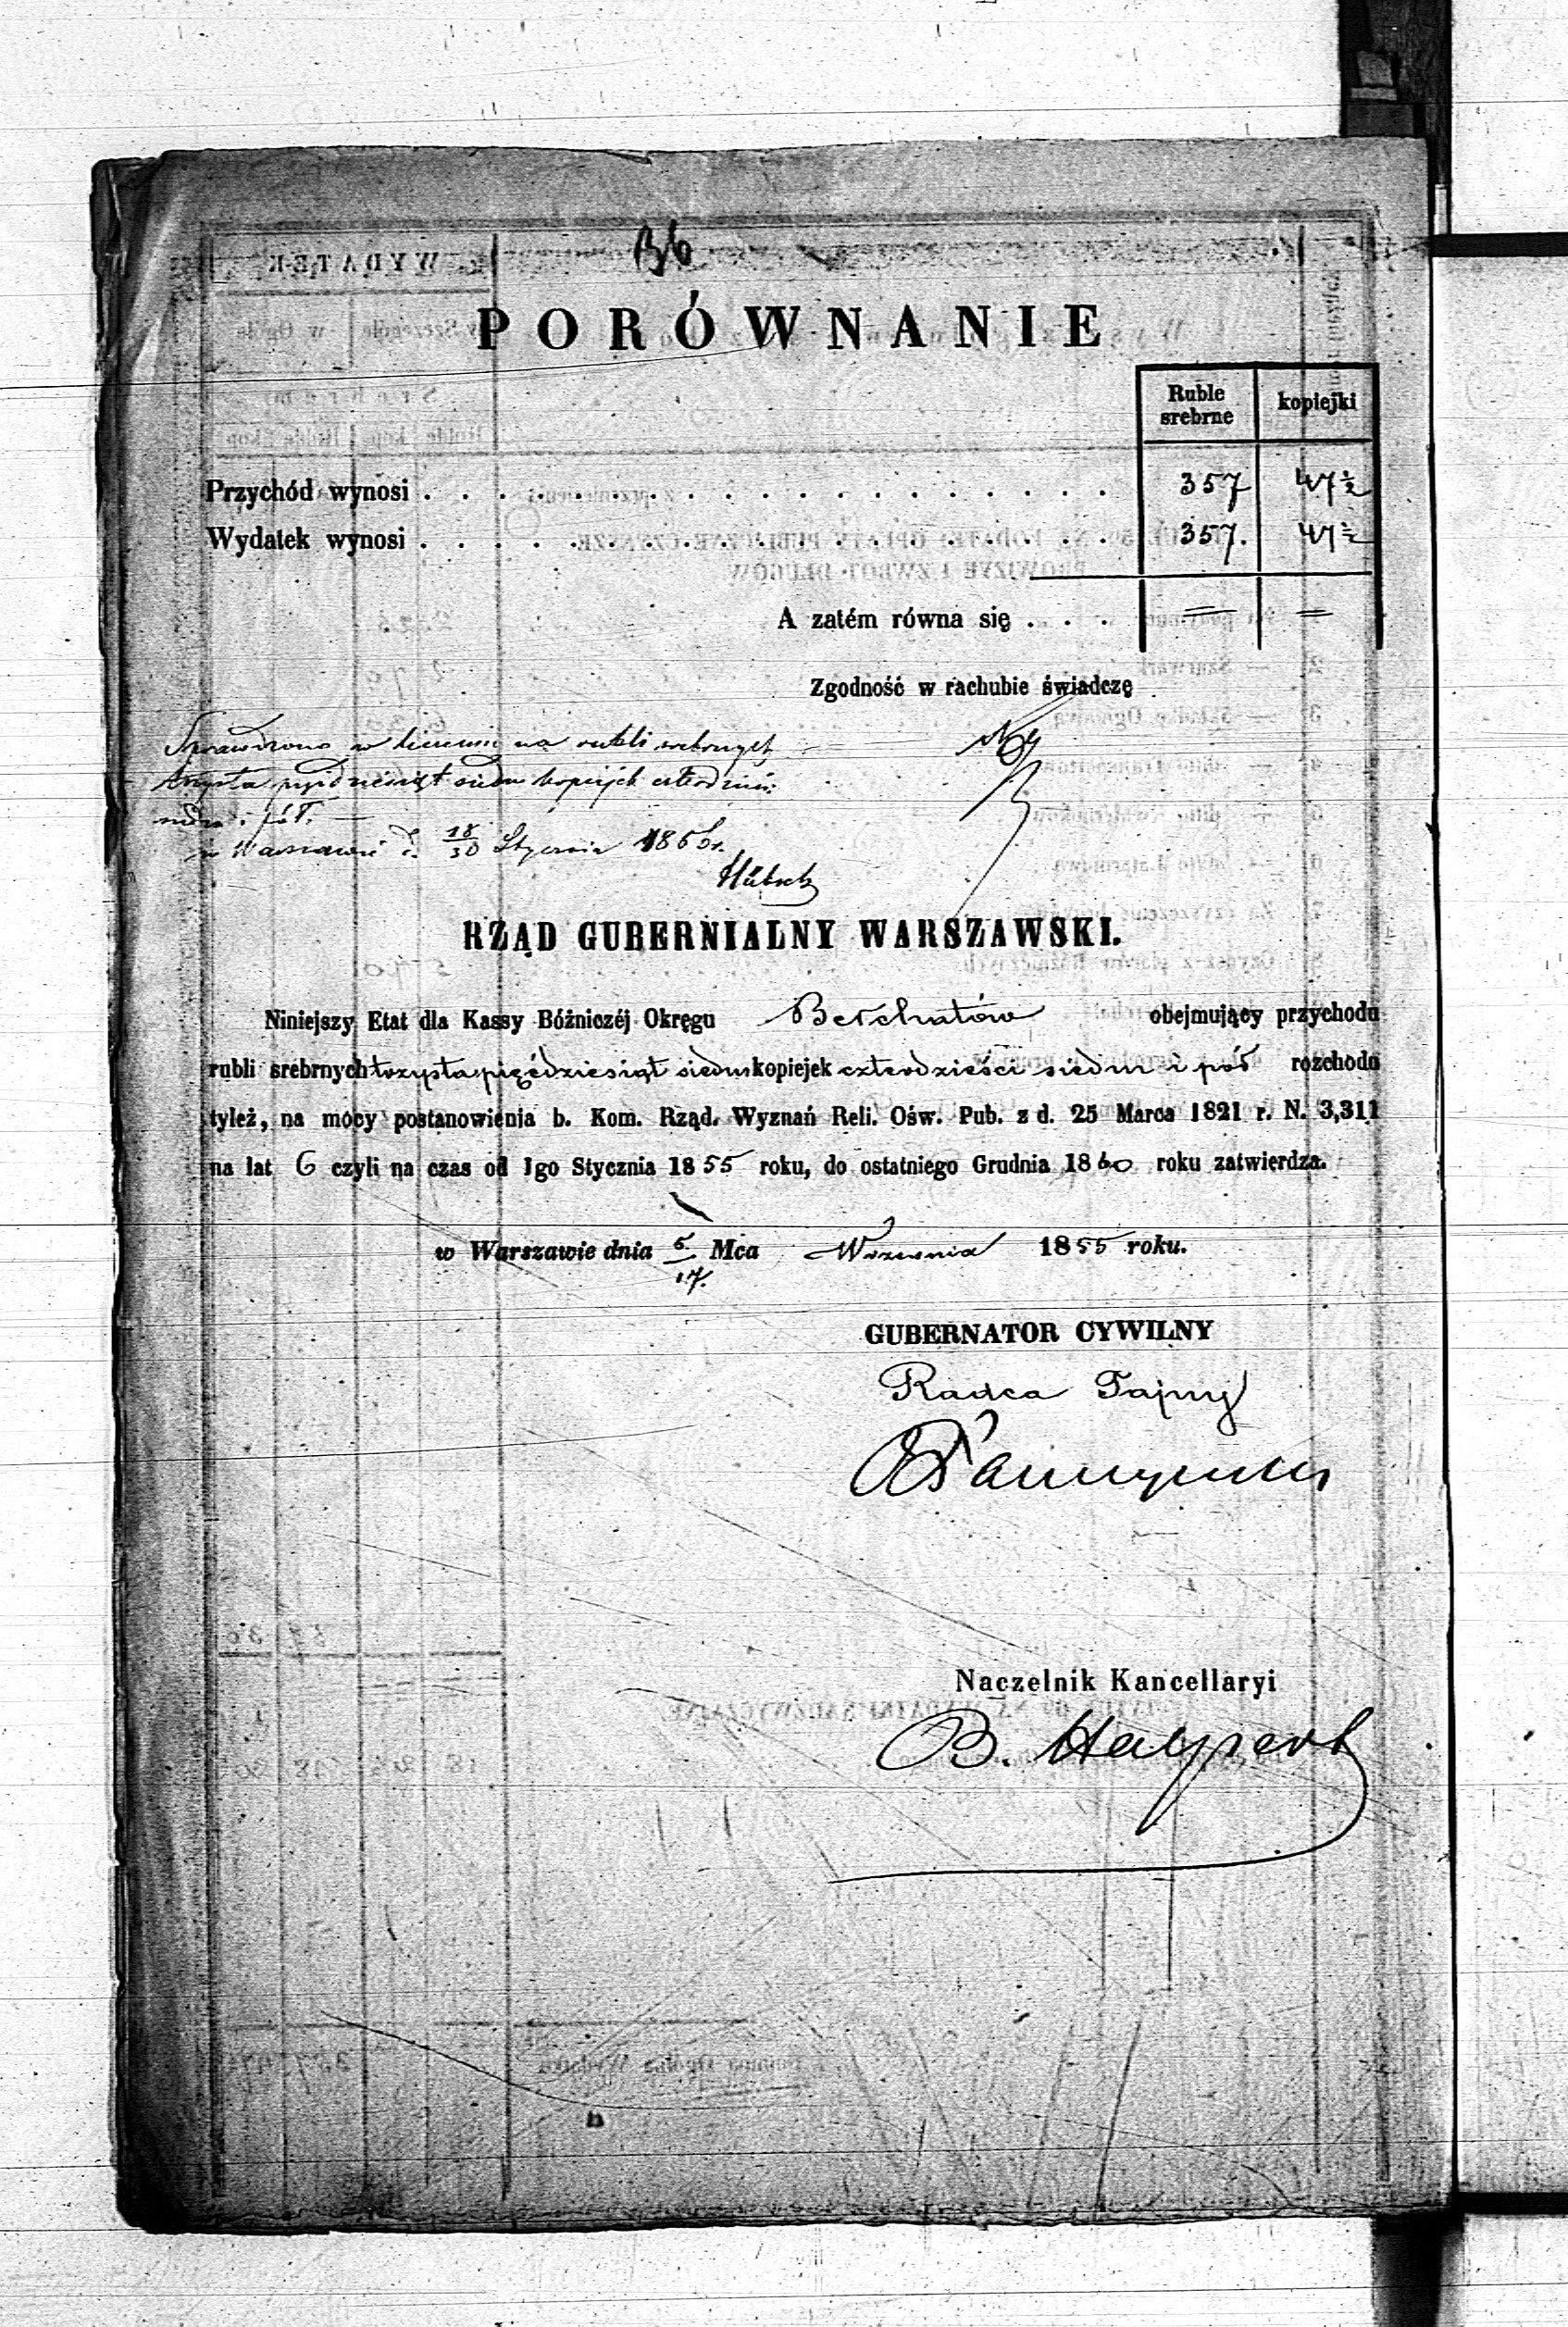 PORÓWNANIE
Ruble srebrne kopiejki
Przychód wynosi . . . . . . . . . . . . . . . . . . 357 47 ½
Wydatek wynosi . . . . . . . . . . . . . . . . . . 357. 47 ½
A zatém równa się . . . = =
Zgodność w rachubie świadczę
Sprawdzono w liczeniu na rubli srebrnych
trzysta pięćdziesiąt siedm kopiejek czterdzieści
siedm i pół. —
w Warszawie d. 18/30 Stycznia 1855 r.
Hübsch
RZĄD GUBERNIALNY WARSZAWSKI.
Niniejszy Etat dla Kassy Bóżniczéj Okręgu Bełchatów obejmujący przychodu
rubli srebrnych trzysta pięćdziesiąt siedm kopiejek czterdzieści siedm i pół rozchodu
tyleż, na mocy postanowienia b. Kom. Rząd. Wyznań Reli. Ośw. Pub. z d. 25 Marca 1821 r. N. 3,311
na lat 6 czyli na czas od 1go Stycznia 1855 roku, do ostatniego Grudnia 1860 roku zatwierdza.
w Warszawie dnia 5/17. Mca Września 1855 roku.
GUBERNATOR CYWILNY
Radca Tajny
Naczelnik Kancellaryi
B. Halpert